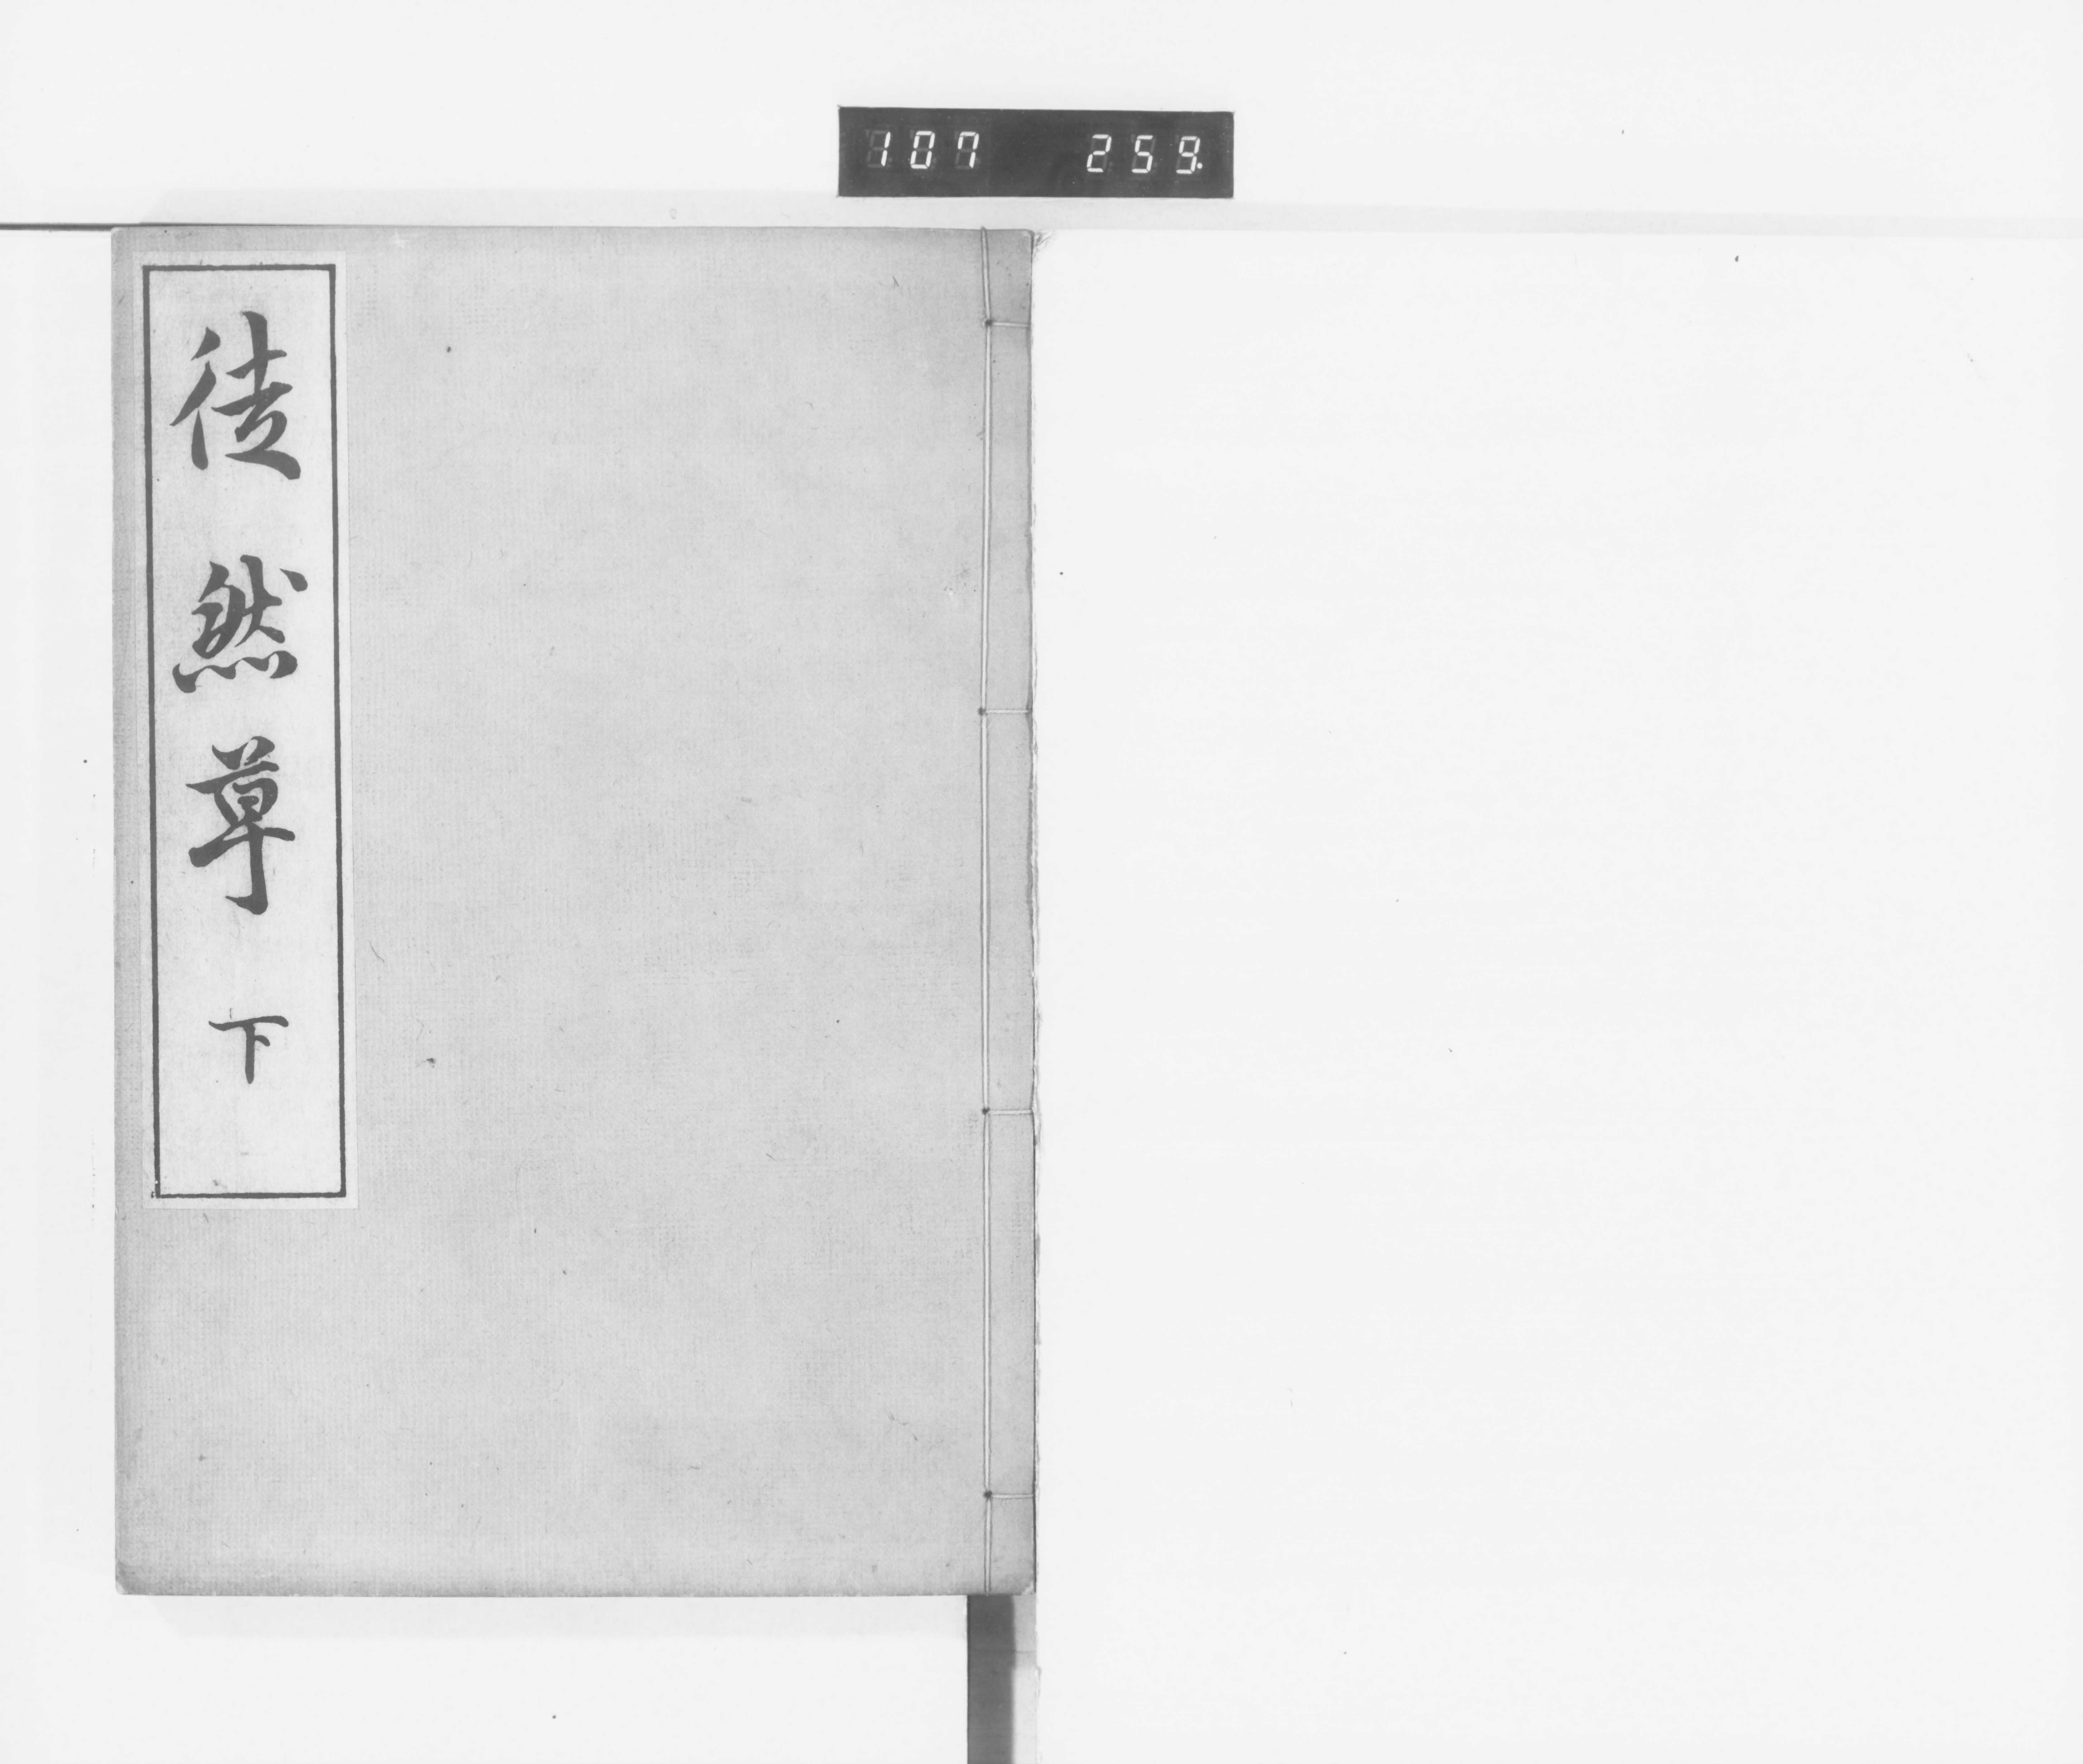 107 259
徒然草 下